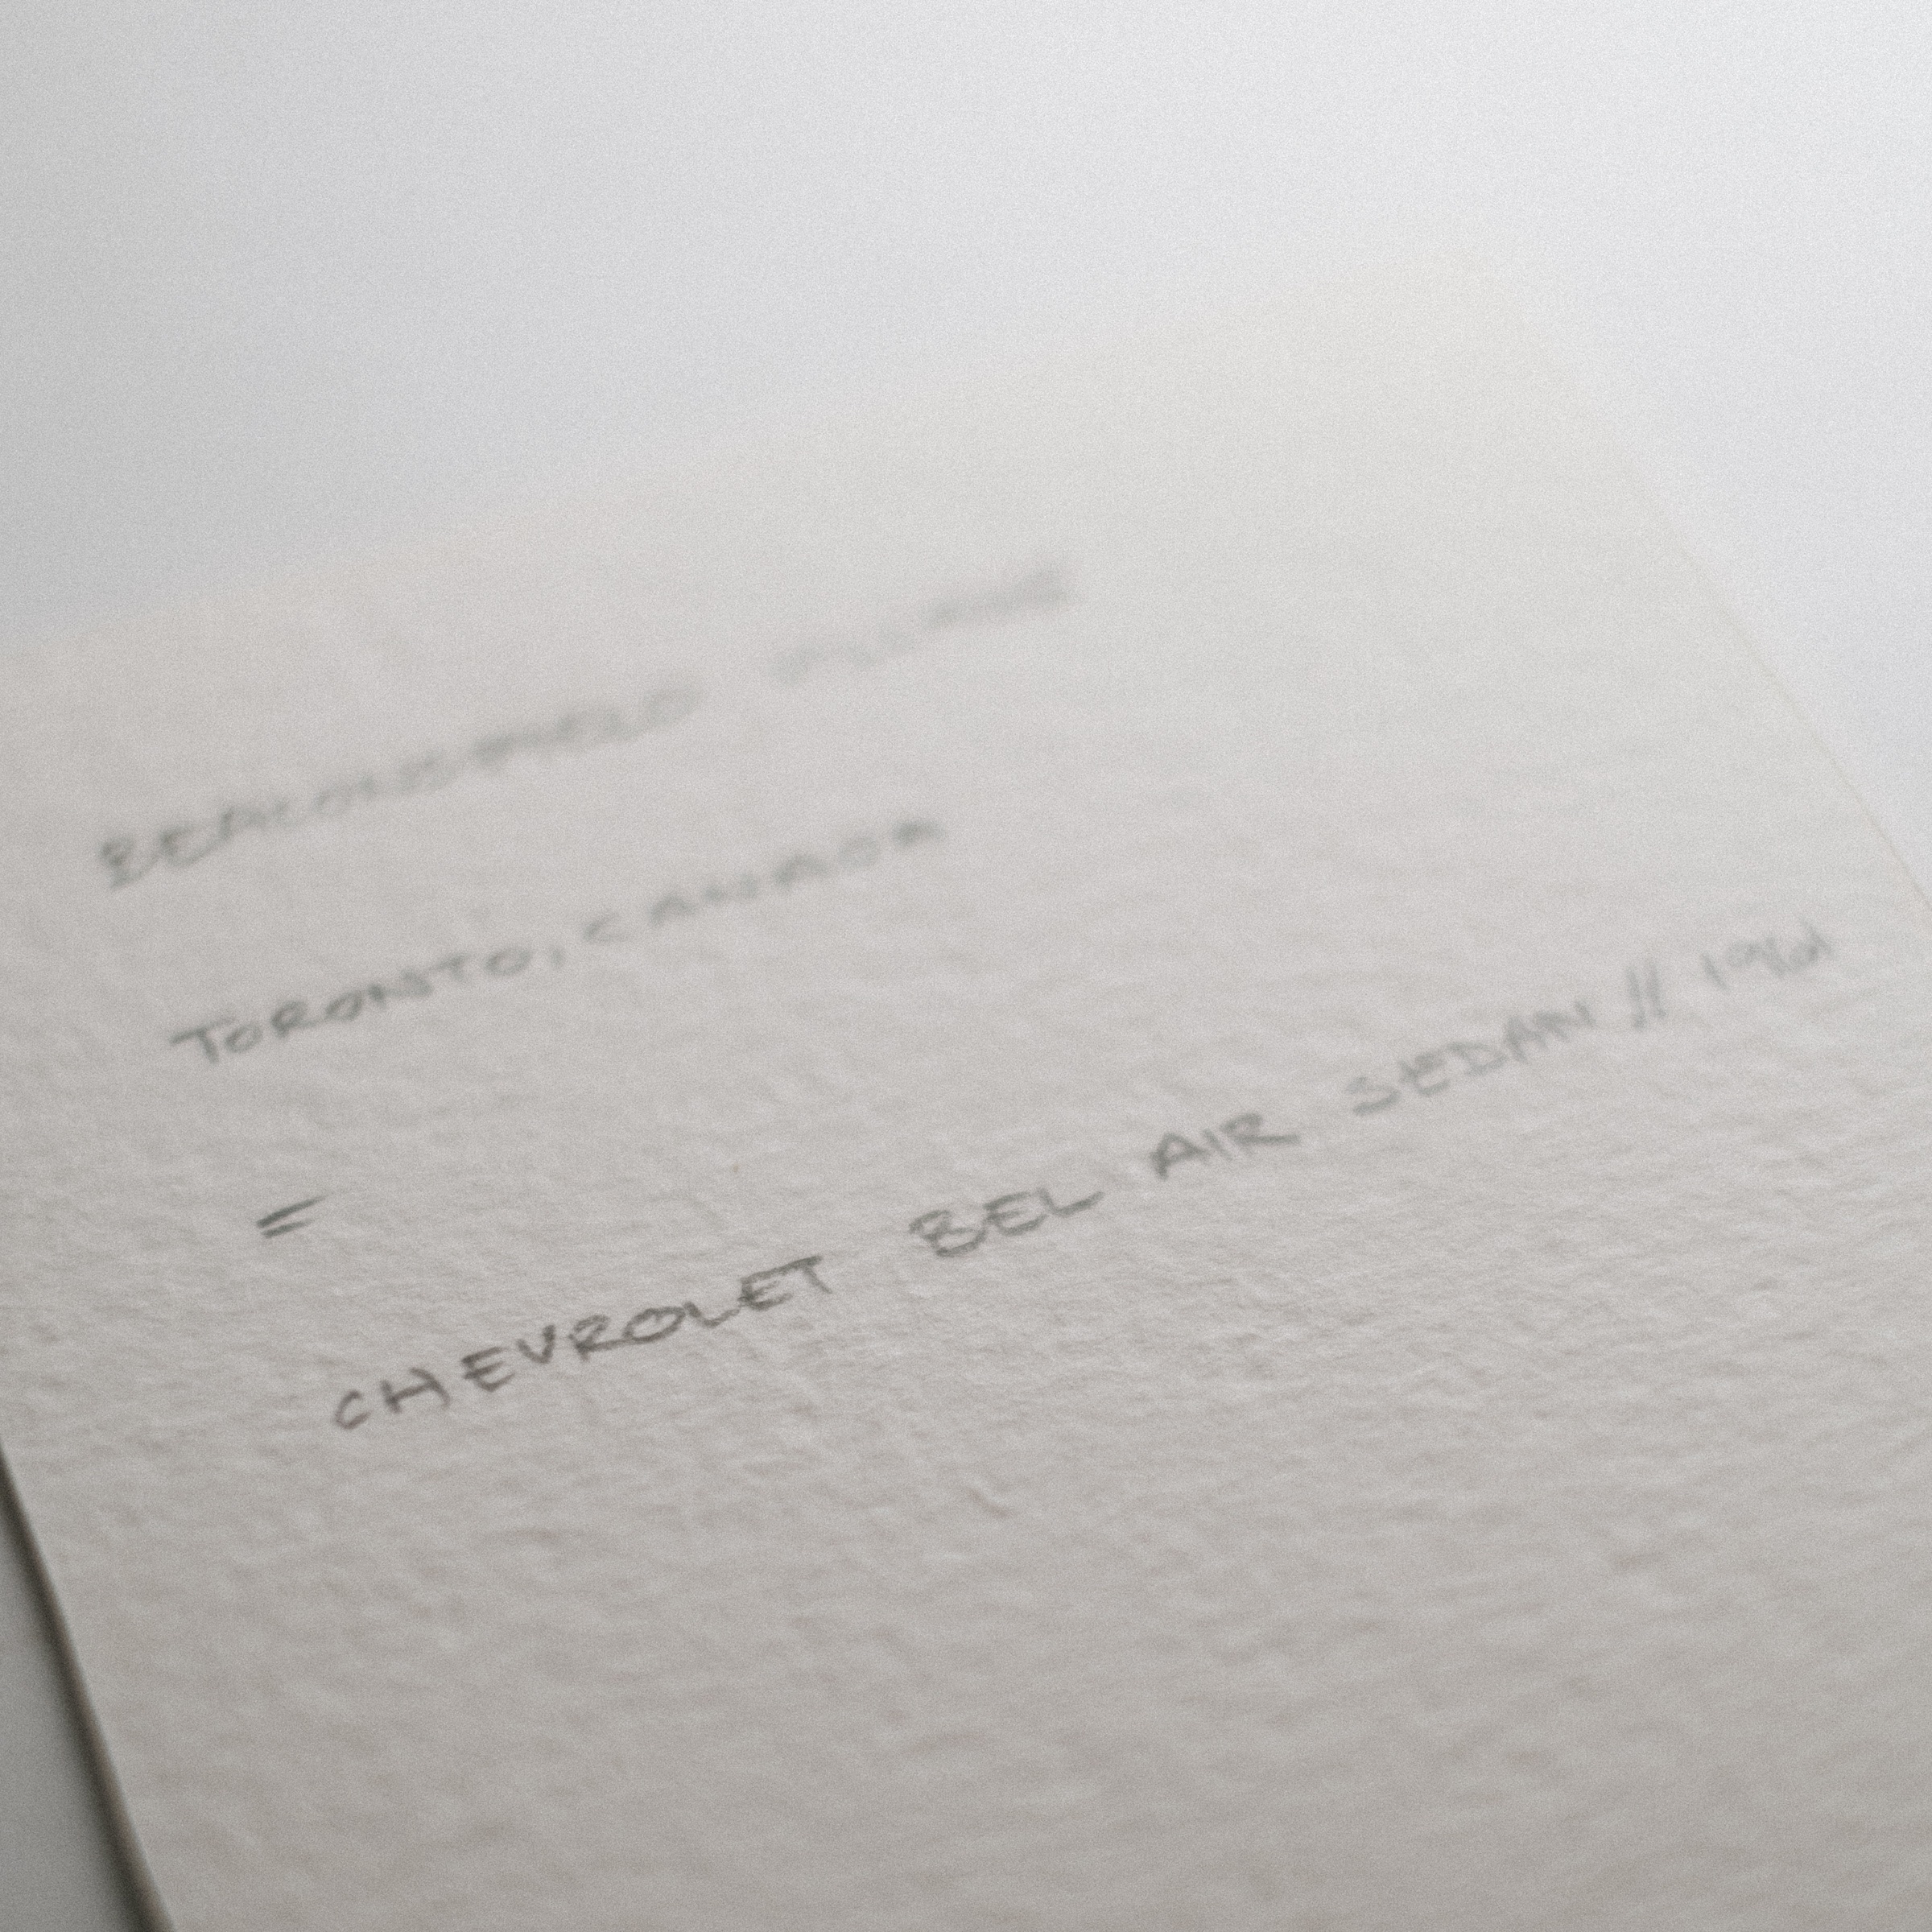 BEACONSFIELD
TORONTO, CANADA
=
CHEVROLET BEL AIR SEDAN //